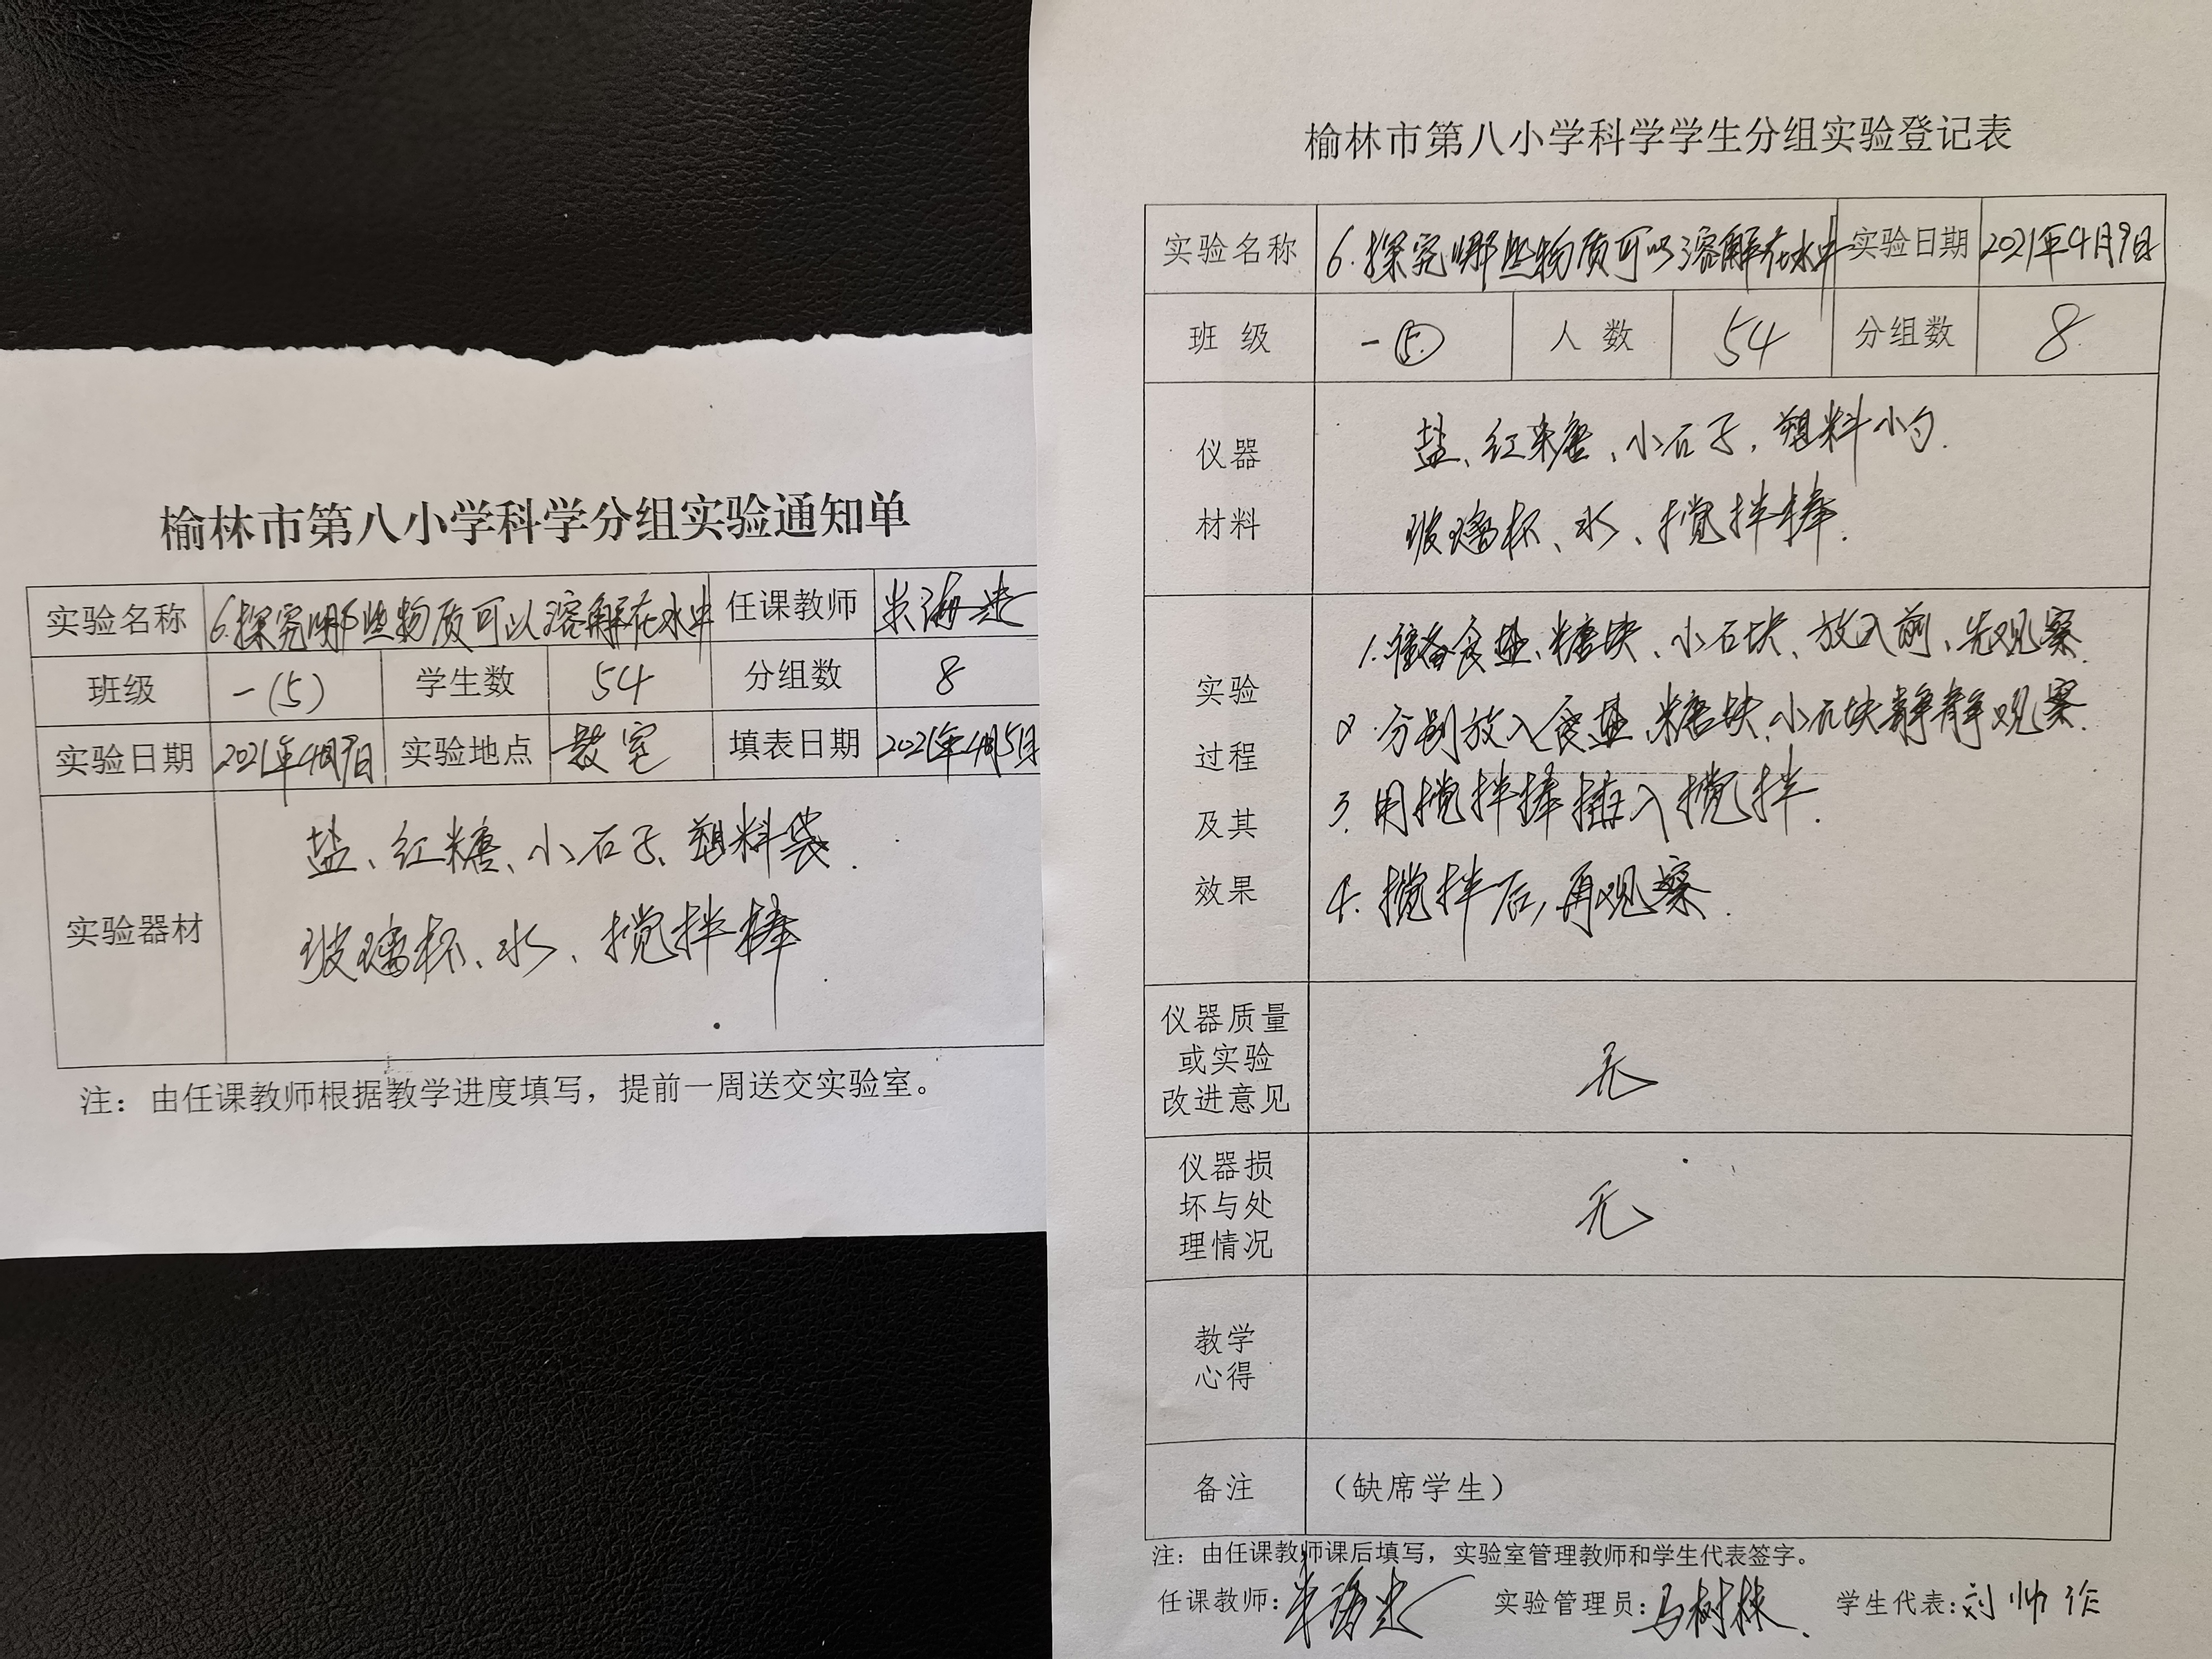 榆林市第八小学科学分组实验通知单
实验名称 6.探究哪些物质可以溶解在水中 任课教师
班级 一(5) 学生数 54 分组数 8
实验日期 2021年4月9日 实验地点 教室 填表日期 2021年4月5日
盐、红糖、小石子、塑料袋.
实验器材
玻璃杯、水、搅拌棒
注：由任课教师根据教学进度填写，提前一周送交实验室。
榆林市第八小学科学学生分组实验登记表
实验名称 6.探究哪些物质可以溶解在水中 实验日期 2021年4月9日
班 级 一⑤ 人 数 54 分组数 8
仪器
材料
盐、红糖、小石子、塑料小勺.
玻璃杯、水、搅拌棒.
实验
过程
及其
效果
1.准备食盐、糖块、小石块、放入前、先观察.
2.分别放入食盐、糖块、小石块静静观察.
3.用搅拌棒插入搅拌.
4.搅拌后,再观察.
仪器质量
或实验
改进意见
无
仪器损
坏与处
理情况
无
教学
心得
备注 （缺席学生）
注：由任课教师课后填写，实验室管理教师和学生代表签字。
任课教师: 实验管理员:马树林. 学生代表:刘帅